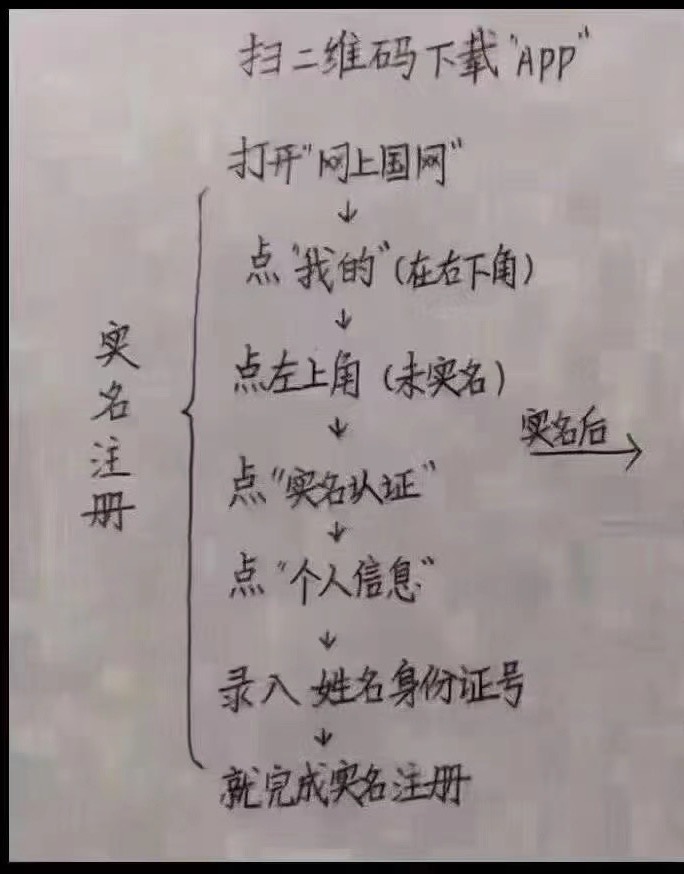 扫二维码下载"APP"
打开"网上国网"
↓
点"我的"(在右下角)
↓
点左上角(未实名)
↓
点"实名认证"
↓
点"个人信息"
↓
录入 姓名身份证号
↓
就完成实名注册
实名注册
实名后